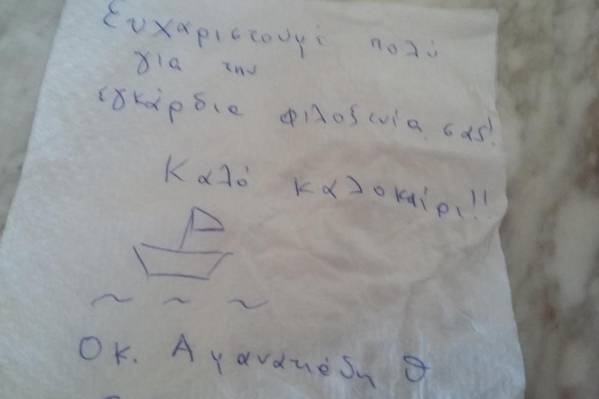 Ευχαριστούμε πολύ
για την
εγκάρδια φιλοξενία σας!
Καλό καλοκαίρι!!
Οικ.